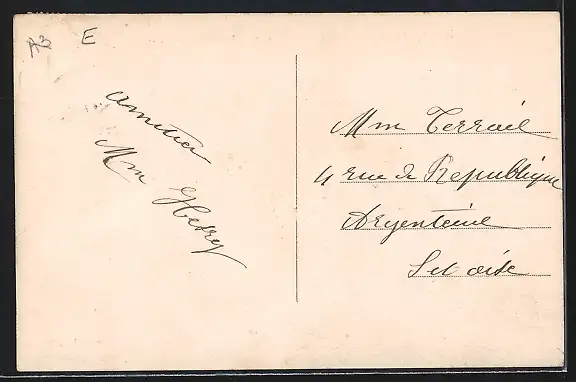 A3 E
amitier
Mm
Mm Terrail
4 rue de Republique
Argenteuil
S et oise